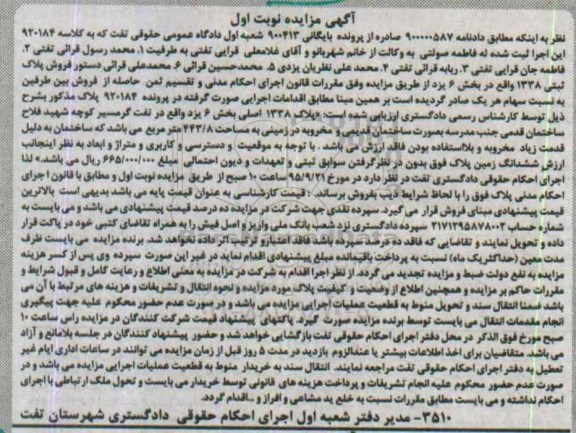 آگهی مزایده نوبت اول
نظر به اینکه مطابق دادنامه ۹۰۰۰۰۰۵۸۷ صادره از پرونده بایگانی ۹۰۰۴۱۳ شعبه اول دادگاه عمومی حقوقی تفت که به کلاسه ۹۲۰۱۸۴
این اجرا ثبت شده له فاطمه صولتی به وکالت از خانم شهربانو و آقای غلامعلی قرایی تفتی به طرفیت ۱. محمد رسول قرائی تفتی ۲.
فاطمه جان قرایی تفتی ۳. ربابه قرائی تفتی ۴. محمد علی نظریان یزدی ۵. محمدحسین قرائی ۶. محمدعلی قرائی دستور فروش پلاک
ثبتی ۱۳۳۸ واقع در بخش ۶ یزد از طریق مزایده وفق مقررات قانون اجرای احکام مدنی و تقسیم ثمن حاصله از فروش بین طرفین
به نسبت سهام هر یک صادر گردیده است بر همین مبنا مطابق اقدامات اجرایی صورت گرفته در پرونده ۹۲۰۱۸۴ پلاک مذکور بشرح
ذیل توسط کارشناس رسمی دادگستری ارزیابی شده است. «پلاک ۱۳۳۸ اصلی بخش ۶ یزد واقع در تفت گرمسیر کوچه شهید فلاح
ساختمان قدیمی جنب مدرسه بصورت ساختمان قدیمی و مخروبه در زمینی به مساحت ۴۴۳/۸ متر مربع می باشد که ساختمان به دلیل
قدمت زیاد مخروبه و بلااستفاده بودن فاقد ارزش می باشد. با توجه به موقعیت و دسترسی و کاربری و متراژ و ابعاد به نظر اینجانب
ارزش ششدانگ زمین پلاک فوق بدون در نظر گرفتن سوابق ثبتی و تعهدات و دیون احتمالی مبلغ ۶۶۵/۰۰۰/۰۰۰ ریال می باشد.» لذا
اجرای احکام حقوقی دادگستری تفت در نظر دارد در مورخ ۹۵/۹/۲۱ ساعت ۱۰ صبح از طریق مزایده نوبت اول و مطابق با قانون اجرای
احکام مدنی پلاک فوق را با لحاظ شرایط ذیل بفروش برساند. ۱. قیمت کارشناسی به عنوان قیمت پایه می باشد بدیهی است بالاترین
قیمت پیشنهادی مبنای فروش قرار می گیرد. سپرده نقدی جهت شرکت در مزایده ده درصد قیمت پیشنهادی می باشد و می بایست به
شماره حساب ۲۱۷۱۲۹۵۸۷۸۰۰۲ سپرده دادگستری نزد بانک ملی واریز و اصل فیش را به همراه تقاضای کتبی خود در پاکت قرار
داده و تحویل نمایند و تقاضایی که فاقد ده درصد سپرده باشد فاقد اعتبار و ترتیب اثر داده نخواهد شد. برنده مزایده می بایست ظرف
مدت معین (حداکثر یک ماه) نسبت به پرداخت باقیمانده مبلغ پیشنهادی اقدام نماید در غیر این صورت سپرده وی پس از کسر هزینه
مزایده به نفع دولت ضبط و مزایده تجدید می گردد. از نظر اجرا اقدام به شرکت در مزایده به معنی اطلاع و رعایت کامل و قبول شرایط و
مقررات حاکم بر مزایده و همچنین اطلاع از وضعیت و کیفیت پلاک مورد مزایده و نحوه انتقال و تشریفات و هزینه های مرتبط با آن می
باشد ضمنا انتقال سند و تحویل منوط به قطعیت عملیات اجرایی مزایده می باشد و در صورت عدم حضور محکوم علیه جهت پیگیری
انجام مقدمات انتقال می بایست توسط برنده مزایده صورت گیرد. پاکتهای پیشنهاد قیمت شرکت کنندگان در مزایده راس ساعت ۱۰
صبح مورخ فوق الذکر در محل دفتر اجرای احکام حقوقی تفت بازگشایی خواهد شد و حضور پیشنهاد کنندگان در جلسه بلامانع و آزاد
می باشد. متقاضیان برای اخذ اطلاعات بیشتر یا عندالزوم بازدید در مدت ۵ روز قبل از زمان مزایده می توانند در ساعات اداری ایام غیر
تعطیل به دفتر اجرای احکام حقوقی تفت مراجعه نمایند. انتقال سند به خریدار منوط به قطعیت عملیات اجرایی مزایده می باشد و در
صورت عدم حضور محکوم علیه انجام تشریفات و پرداخت هزینه های قانونی توسط خریدار می بایست و تحویل ملک ارتباطی با اجرای
احکام نداشته و می بایست مطابق مقررات نسبت به خلع ید مشاعی و افراز و ...اقدام گردد.
۳۵۱۰- مدیر دفتر شعبه اول اجرای احکام حقوقی دادگستری شهرستان تفت